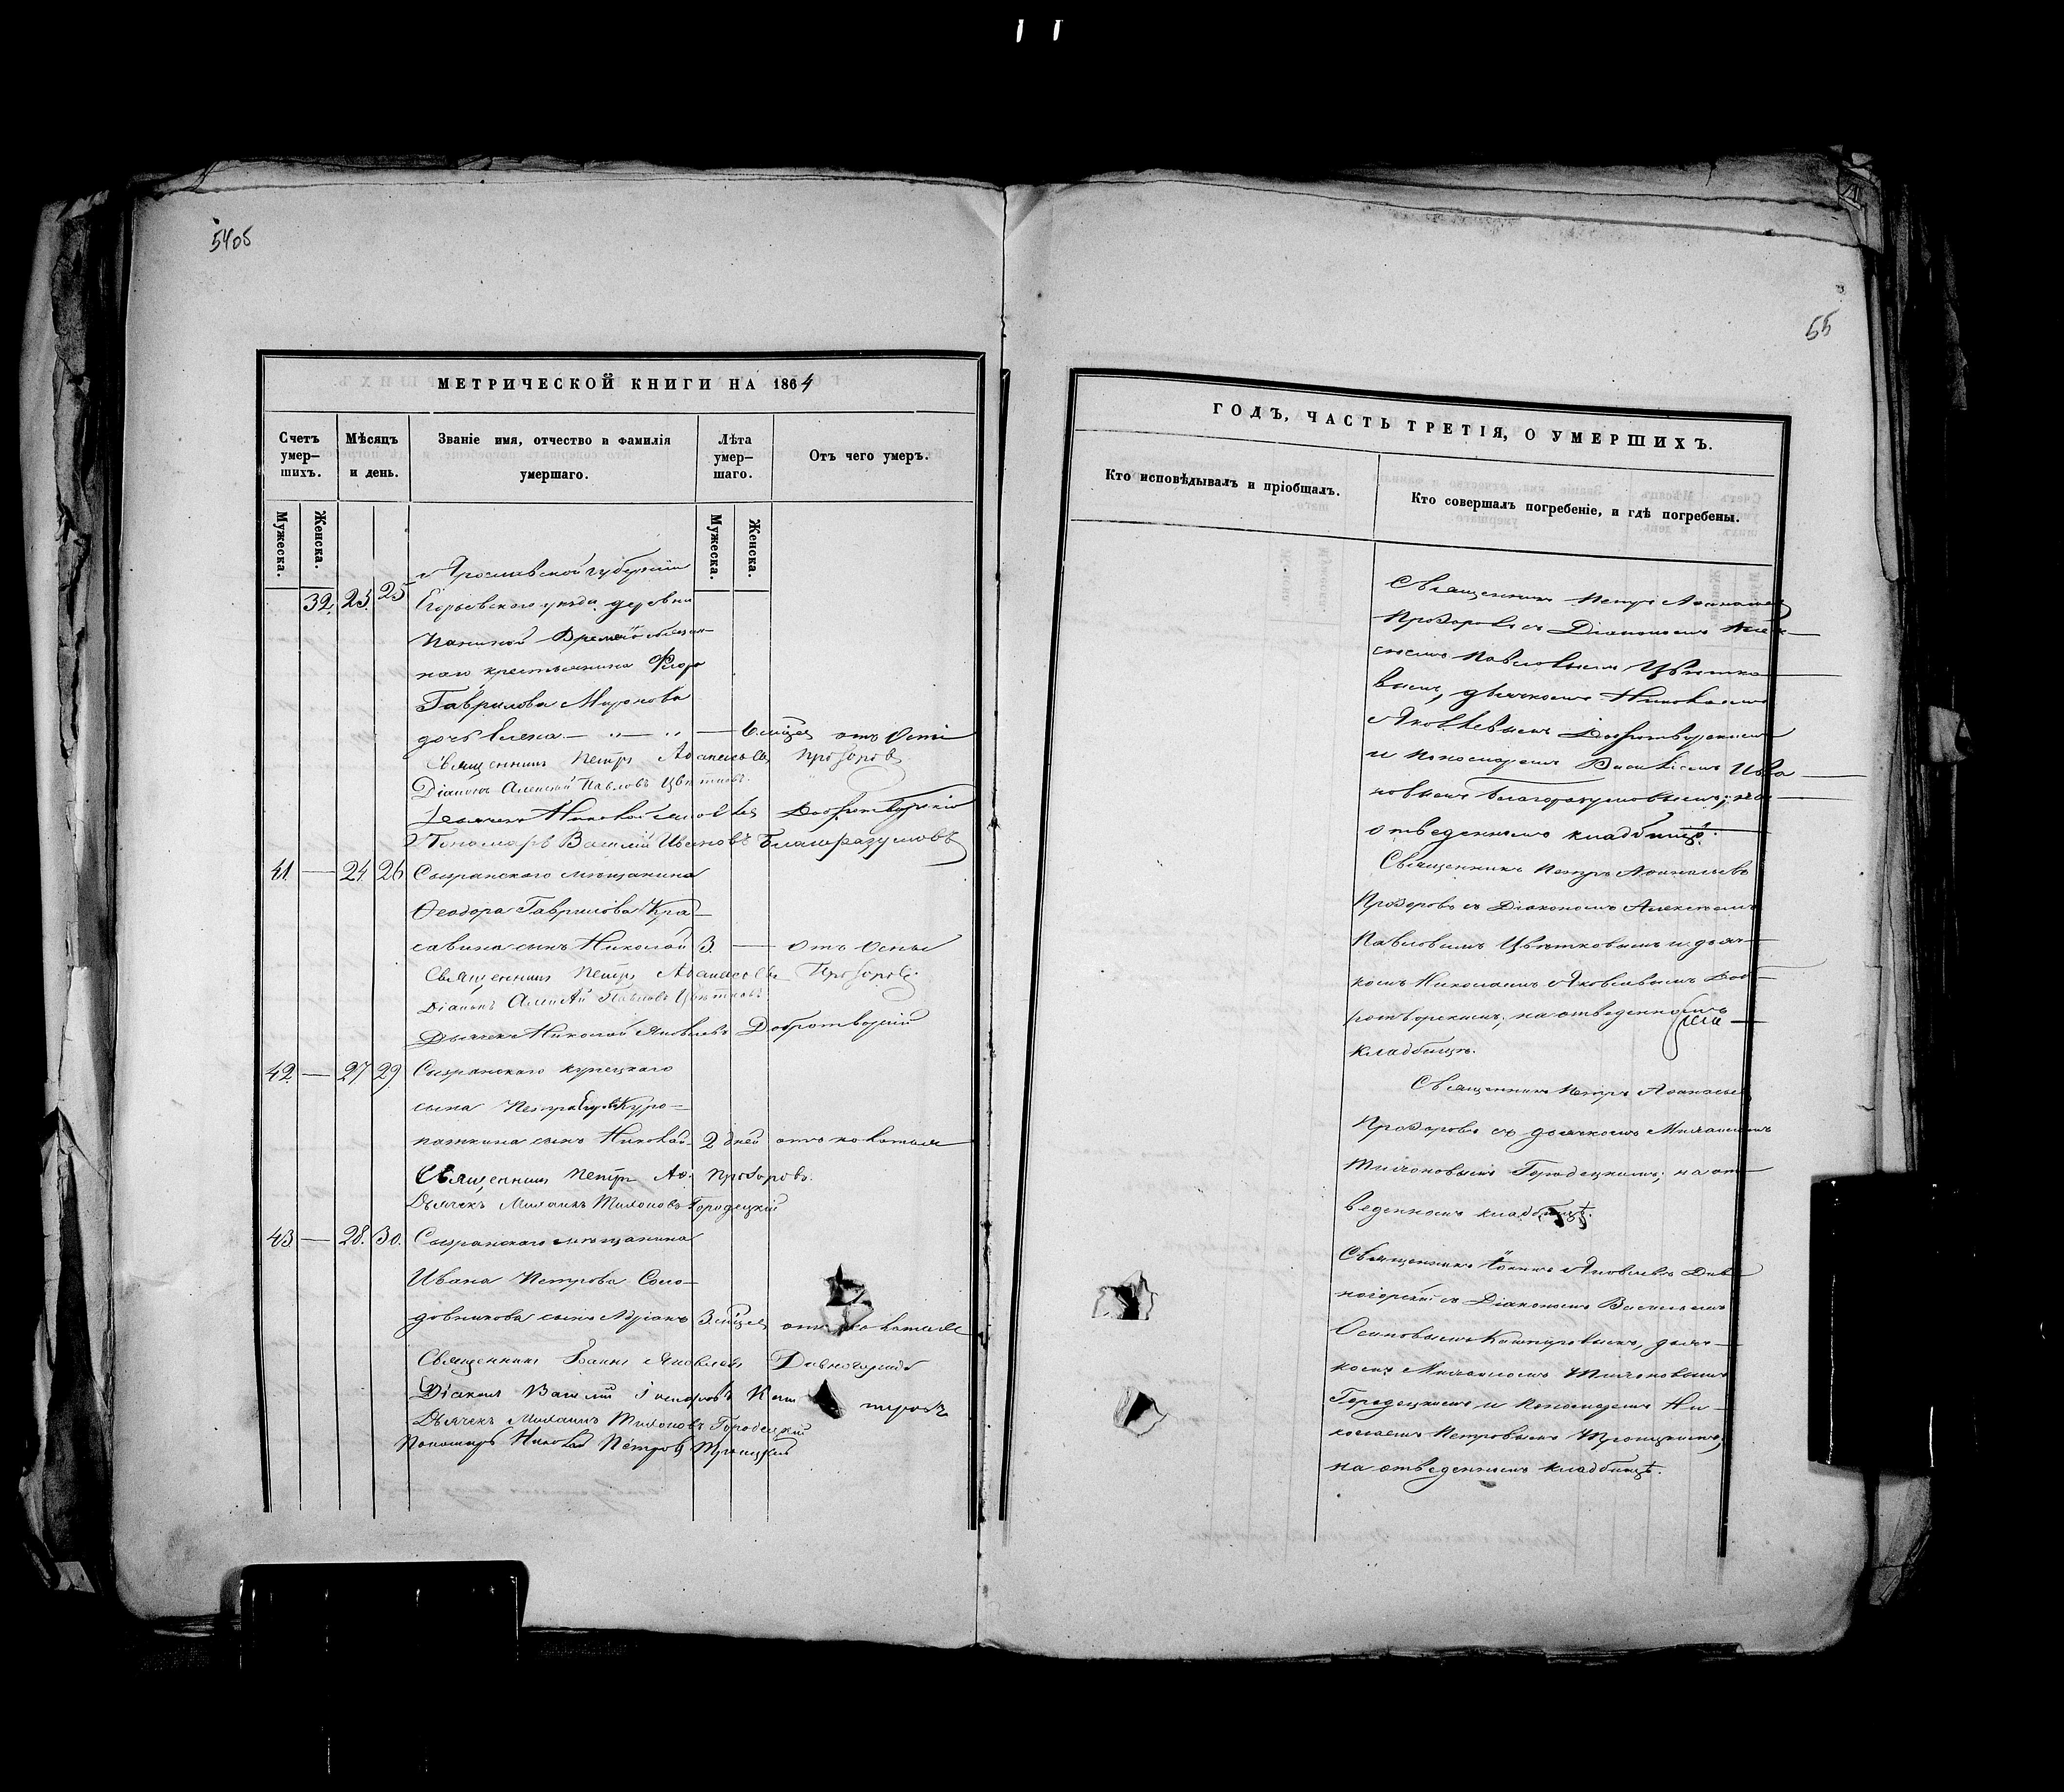 5405
МЕТРИЧЕСКОЙ КНИГИ НА 1864
Счетъ умер–шихъ.
Мѣсяцъ и день.
Званіе имя, отчество и фамилія умершаго.
Лѣта умер–шаго.
Отъ чего умеръ.
Мужеска.
Женска.
Мужеска.
Женска.
Ярославской губерніи
32. 23. 25 Егорьевскаго уѣзда деревни
наго крестьянина
Гаврилова Миронова
дочь Елена — „ — „ — 6 мѣсяц. отъ
Священникъ Петръ Аѳанасьевъ Прозоровъ
Діаконъ Алексѣй Павловъ Цвѣтковъ.
Дьячекъ Николай Добротворскій
Пономарь Василій Ивановъ Благоразумовъ
41. — 24. 26 Сызранскаго мѣщанина
Ѳеодора Гаврилова Кра–
савина сынъ Николай 3. — отъ Оспы
Священникъ Петръ Аѳанасьевъ Прозоровъ.
Діаконъ Алексѣй Павловъ Цвѣтковъ
Дьячекъ Николай Яковлевъ Добротворскій
42. — 27 29 Сызранскаго купецкаго
сына Петра Куро–
паткина сынъ Николай 2 дней отъ
Священникъ Петръ Аѳ. Прозоровъ.
Дьячекъ Михаилъ Тихоновъ Городецкій
43. — 28. 30. Сызранскаго мѣщанина
Ивана Петрова Соло–
довникова сынъ 3. мѣсяц.
Священникъ Іоаннъ Яковлевъ Дивногорскій
Діаконъ Василій
Дьячекъ Михаилъ Тихоновъ Городецкій
Пономарь Николай Петровъ Троицкій
55
ГОДЪ, ЧАСТЬ ТРЕТІЯ, О УМЕРШИХЪ.
Кто исповѣдывалъ и пріобщалъ.
Кто совершалъ погребеніе, и гдѣ погребены.
Священникъ Петръ Аѳанасьевъ
Прозоровъ съ Діакономъ Алек–
сѣемъ Павловымъ Цвѣтко–
вымъ, дьячкомъ Николаемъ
Яковлевымъ Добротворскимъ
и Пономаремъ Василіемъ Ива–
новымъ Благоразумовымъ; на–
отведенномъ кладбищѣ.
Священникъ Петръ Аѳанасьевъ
Прозоровъ съ Діакономъ Алексѣемъ
Павловымъ Цвѣтковымъ и дьяч–
комъ Николаемъ Яковлевымъ Доб–
ротворскимъ; на отведенномъ
кладбищѣ.
Священникъ Петръ Аѳанасьевъ
Прозоровъ съ дьячкомъ Михаиломъ
Тихоновымъ Городецкимъ; на от–
веденномъ кладбищѣ.
Священникъ Іоаннъ Яковлевъ Див–
ногорскій съ Діакономъ Василіемъ
дьяч–
комъ Михаиломъ Тихоновымъ
Городецкимъ и Пономаремъ Ни–
колаемъ Петровымъ Троицкимъ;
на отведенномъ кладбищѣ.